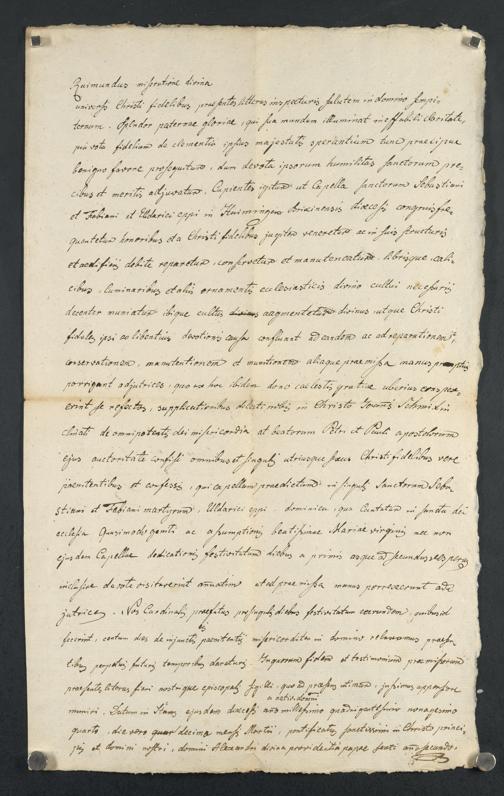 Raimundus miseratione divina
universis Christi fidelibus praesentes litteras inspecturis salutem in domino sempi-
ternam. Splendor paternae gloriae, qui sua mundum illuminat ineffabili claritate,
pia vota fidelium de clementia ipsius majestatis sperantium tunc praecipue
benigno favore prosequitur, dum devota ipsorum humilitas sanctorum pre-
cibus et meritis adjuvatur. Cupientes igitur ut Capella sanctorum Sebastiani
et Fabiani et Udalrici eppi in Brixinensis dioecesis congruis fre-
quentetur honoribus et a Christi fidelibus jugiter veneretur ac in suis structuris
et aedificiis debite reparetur, conservetur et manuteneatur, librisque, cali-
cibus, luminaribus et aliis ornamentis ecclesiasticis divino cultui necessariis
decenter muniatur ibique cultus augmentetur divinus utque Christi
fideles ipsi eo libentius devotionis causa confluant ad eandem ac ad reparationem,
conservationem, manutentionem et munitionem aliaque praemissa manus promptius
porrigant adjutrices, quo ex hoc ibidem dono caelestis gratiae uberius conspexe-
rint se refectos, supplicationibus dilecti nobis in Christo
de omnipotentis dei misericordia at beatorum Petri et Pauli apostolorum
ejus auctoritate confisi omnibus et singulis utriusque sexus Christi fidelibus vere
paenitentibus et confessis, qui capellam praedictam in singulis Sanctorum Seba-
stiani et Fabiani martyrum, Udalrici eppi. dominica, qua Cantatur in sancta dei
ecclesia Quasimodogeniti ac assumptionis beatissimae Mariae virginis nec non
ejusdem Capellae dedicationis festivitatum diebus a primis usque ad secundas vesperas
inclusive devote visitaverint annuatim ut ad praemissa manus porrexerint adi-
jutrices. Nos Cardinalis praefatus pro singulis diebus festivitatum earundem, quibus id
fecerint, centum dies de injunctis eis paenitentiis misericorditer in domino relaxamus praesen-
tibus perpetuis futuris temporibus duraturis. In quorum fidem et testimonium praemissorum
praesentes literas fieri nostrique episcopalis sigilli, quo ad praesens utimur, jussimus appensione
muniri. Datum in ejusdem dioecesis anno a nativ. domini millesimo quadringentesimo nonagesimo
quarto, die vero decima mensis Martii, pontificatus sanctissimi in Christo princi-
pis et domini nostri, domini Alexandri divina providentia papae sexti anno secundo.